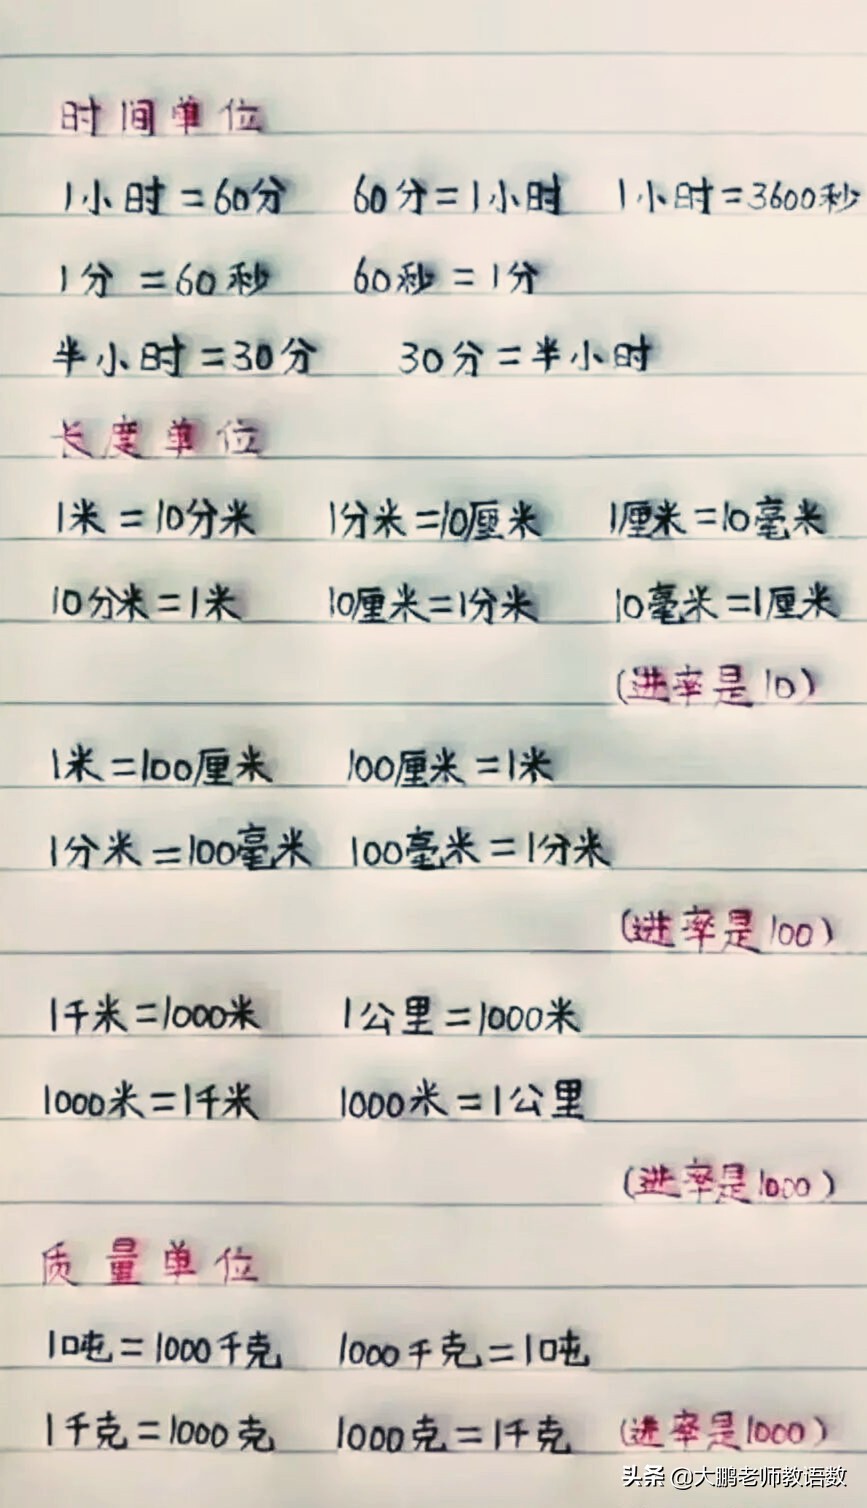 时间单位
1小时=60分 60分=1小时 1小时=3600秒
1分=60秒 60秒=1分
半小时=30分 30分=半小时
长度单位
1米=10分米 1分米=10厘米 1厘米=10毫米
10分米=1米 10厘米=1分米 10毫米=1厘米
(进率是10)
1米=100厘米 100厘米=1米
1分米=100毫米 100毫米=1分米
(进率是100)
1千米=1000米 1公里=1000米
1000米=1千米 1000米=1公里
(进率是1000)
质量单位
1吨=1000千克 1000千克=1吨
1千克=1000克 1000克=1千克 (进率是1000)
头条 @大鹏老师教语数